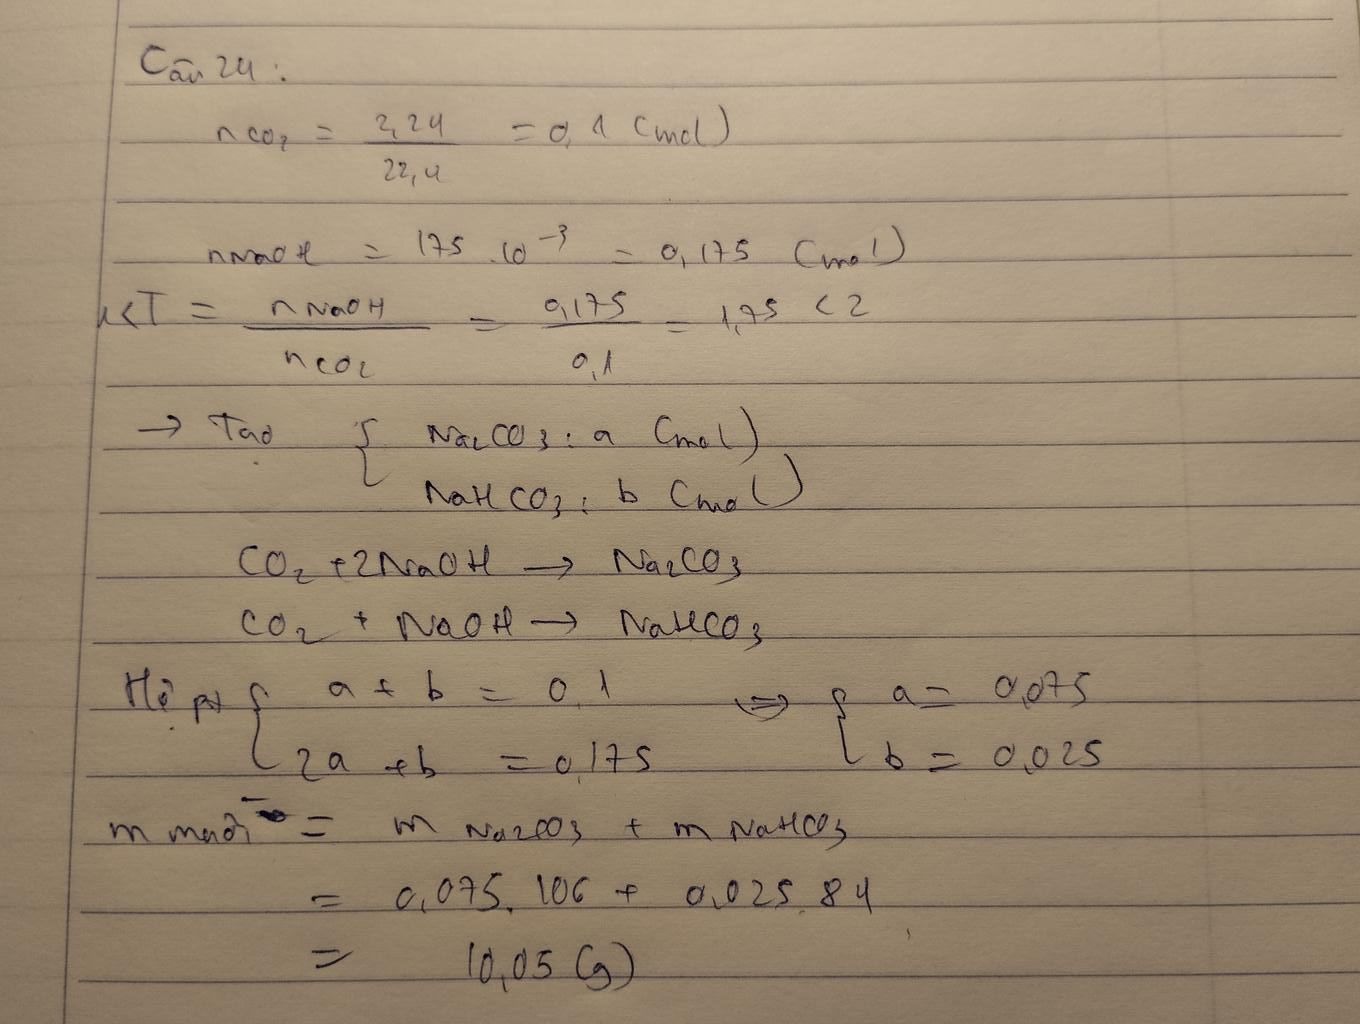 Câu 24:
nCO2 = 2,24 / 22,4 = 0,1 (mol)
nNaOH = 175 . 10^-3 = 0,175 (mol)
1<T = nNaOH / nCO2 = 0,175 / 0,1 = 1,75 < 2
→ Tạo { Na2CO3 : a (mol)
NaHCO3 : b (mol)
CO2 + 2NaOH → Na2CO3
CO2 + NaOH → NaHCO3
Hệ pt { a + b = 0,1 ⇒ { a = 0,075
2a + b = 0,175 b = 0,025
m muối = m Na2CO3 + m NaHCO3
= 0,075. 106 + 0,025.84
= 10,05 (g)